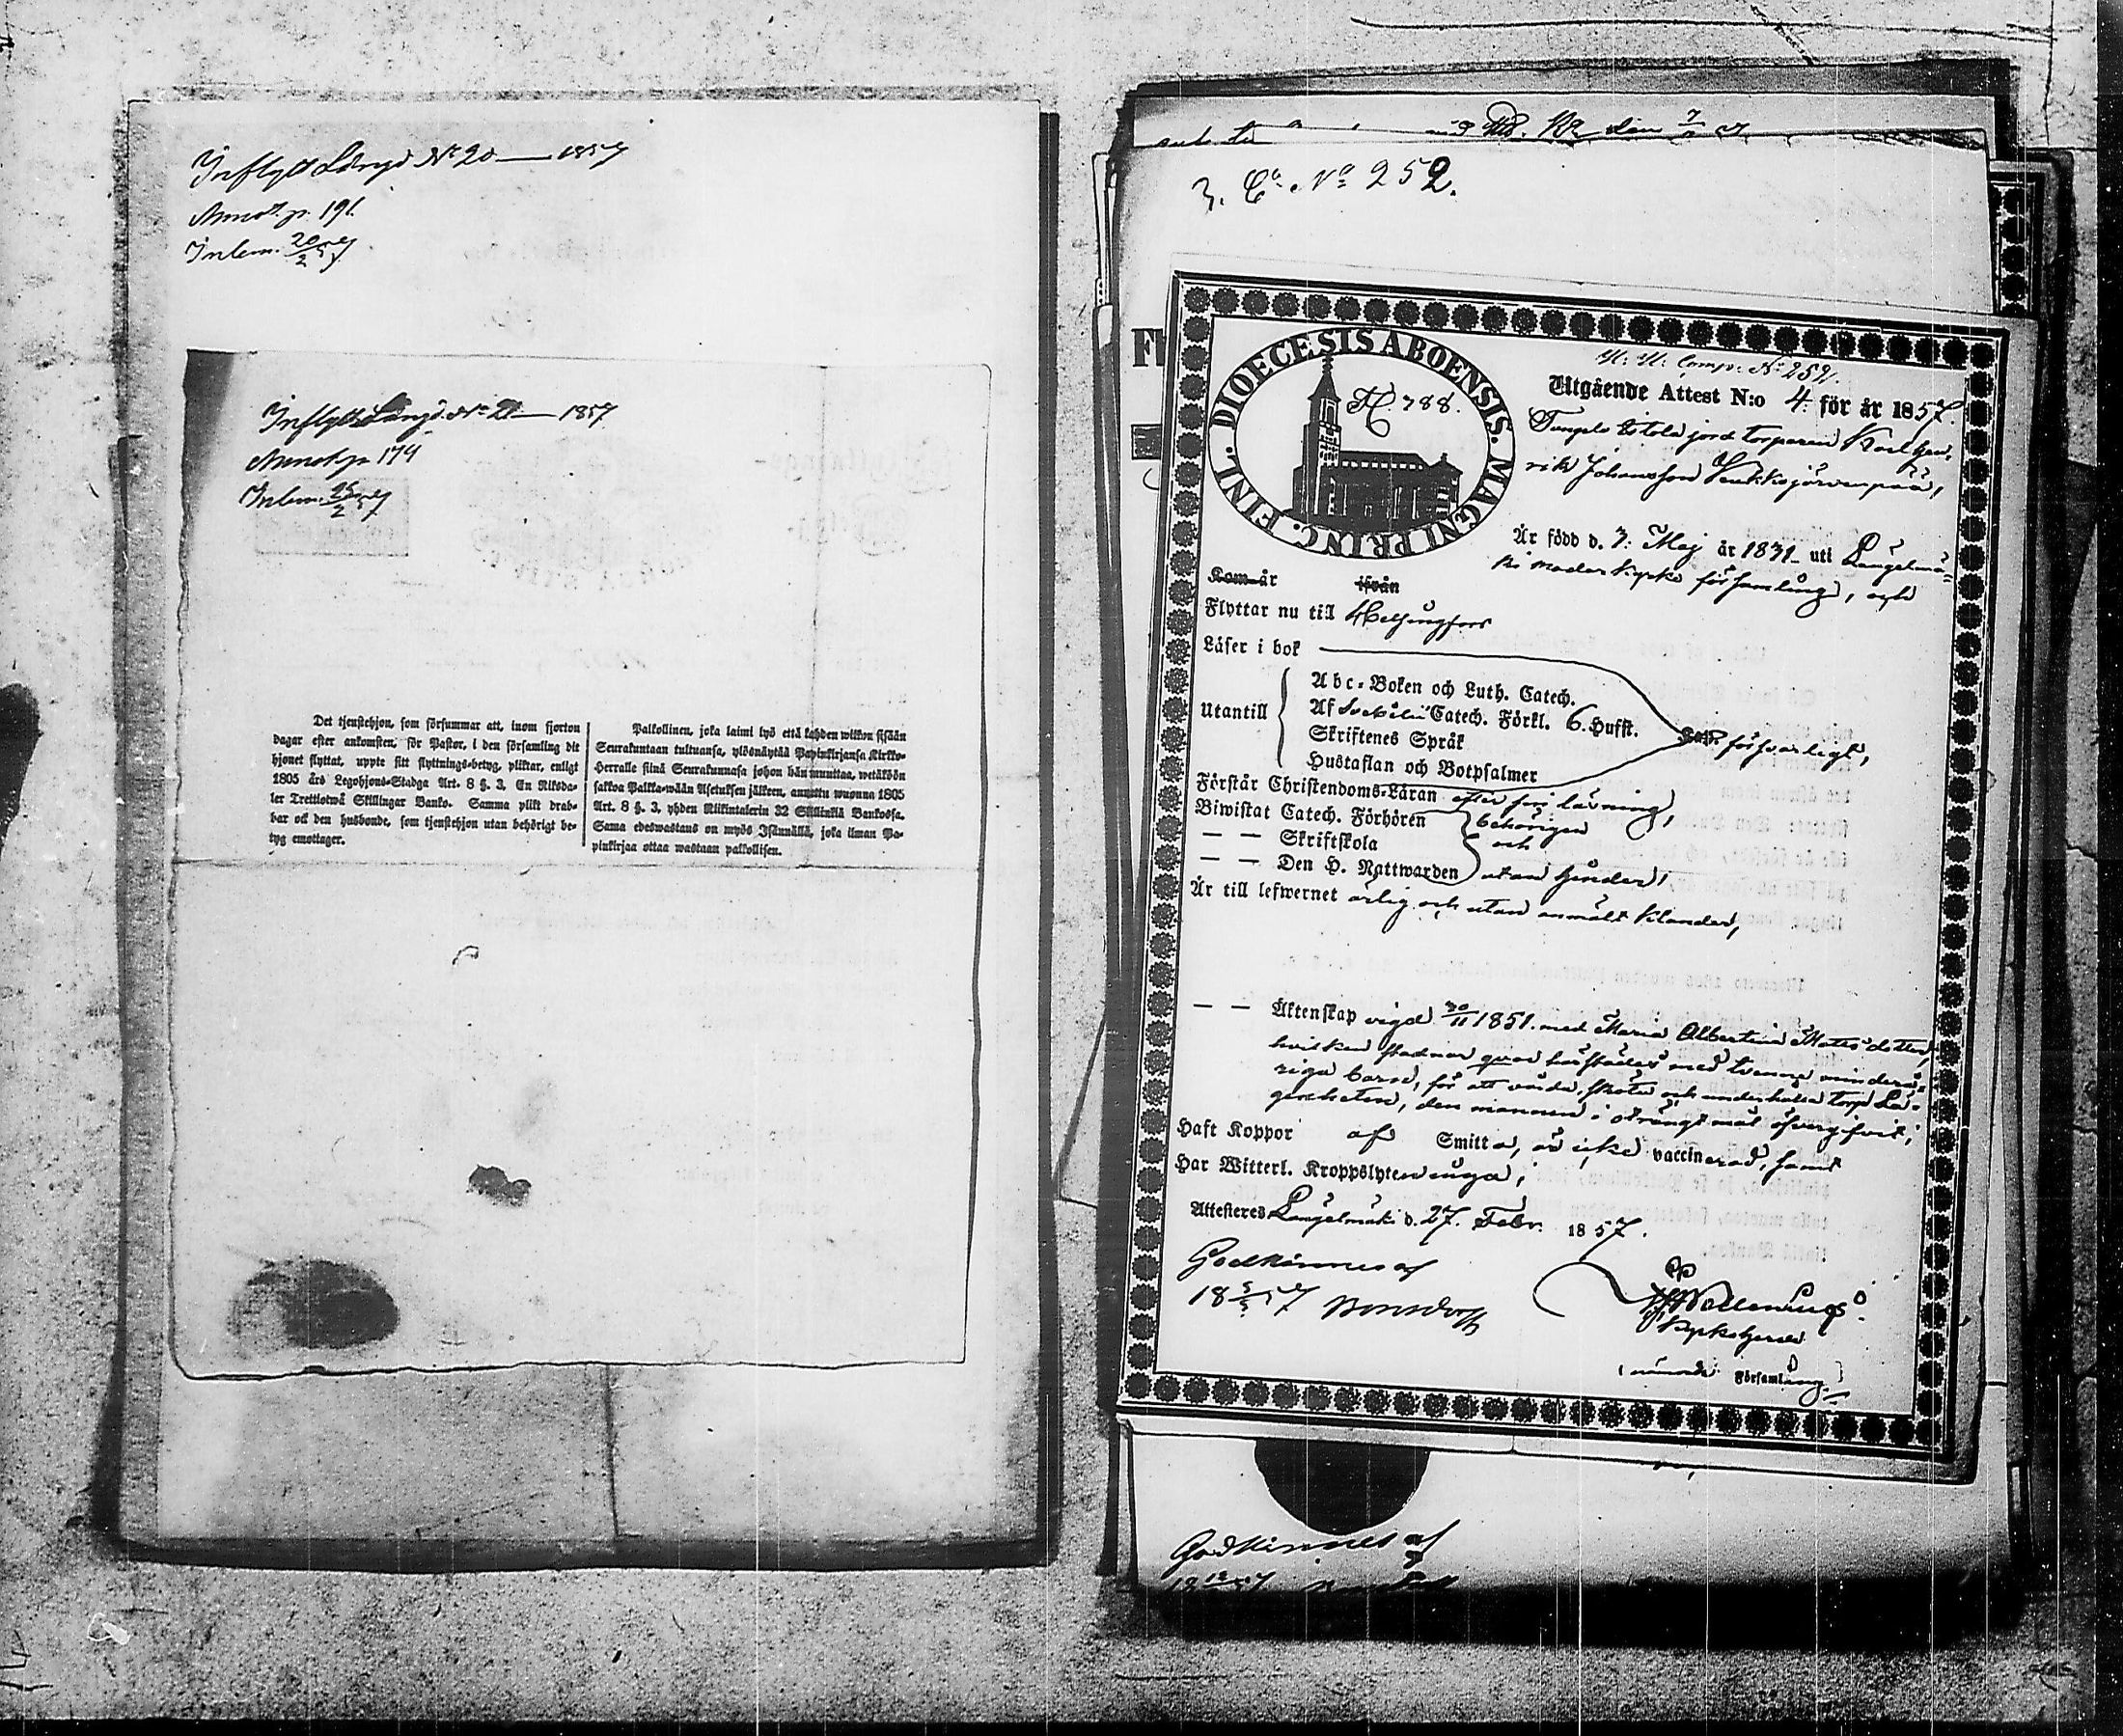 Inflytt Längd No 20 — 1857
Annot. p. 191.
Inlem. 20/2 57
Inflytt Längd. No 21 — 1857
Annot. p. 174
Inlem. 25/2 57
Det tjenstehjon, som försummar att, inom fjorton
dagar efter ankomsten, för Pastor, i den församling dit
hjonet flyttat, uppte sitt flyttnings-betyg, pliktar, enligt
1805 års Legohjons-Stadga Art. 8 §. 3. En Riksda-
ler Trettiotwå Skillingar Banko. Samma plikt drab-
bar ock den husbonde, som tjenstehjon utan behörigt be-
tyg emottager.
Palkollinen, joka laimi lyö että kahden wiikon sisään
Seurakuntaan tultuansa, ylösnäytää Papinkirjansa Kirkko-
Herralle siinä Seurakunnasa johon hän muuttaa, wetäköön
sakkoa Palkka-wään Asetuksen jälkeen, annettu wuonna 1805
Art. 8 §. 3, yhden Riikintalerin 32 Skillinkiä Bankossa.
Sama edeswastaus on myös Isännällä, joka ilman Pa-
pinkirjaa ottaa wastaan palkollisen.
3. C. No 252.
DIOECESIS ABOENSIS. MAGNI PRINC. FINL.
H. 788.
Comp. No 252.
Utgående Attest N:o 4. för år 1857.
jord torparen Karl Hen-
rik Johansson
Är född d. 7. Maj år 1831 uti Längelmä-
ki moderkyrko församling, och
Kom år ifrån
Flyttar nu till Helsingfors
Läser i bok
Utantill
Abc-Boken och Luth. Catech.
Af Svebilii Catech. Förkl. 6. Hufst.
Skriftenes Språk
Hustaflan och Botpsalmer
försvarligt,
Förstår Christendoms-Läran efter sin läsning,
Biwistat Catech. Förhören behörigen
— — Skriftskola och
— — Den H. Nattwarden utan hinder,
Är till lefwernet ärlig och utan anmält klander,
— — Äktenskap vigd 30/11 1851. med Maria Albertina Mattsdotter,
hvilken stadnar qvar härstädes med tvenne minderå-
riga barn, för att vårda, sköta och underhålla torp lä-
genheten, den mannen i oträngt mål öfvergifvit,
Haft Koppor af Smitta, är icke vaccinerad, samt
Har Witterl. Kroppslyten inga;
Attesteras Längelmäki d. 27. Febr. 1857.
Godkännes af
18 5/3 57 Bonsdorff
Kyrkoherde
Församling
Godkännes af